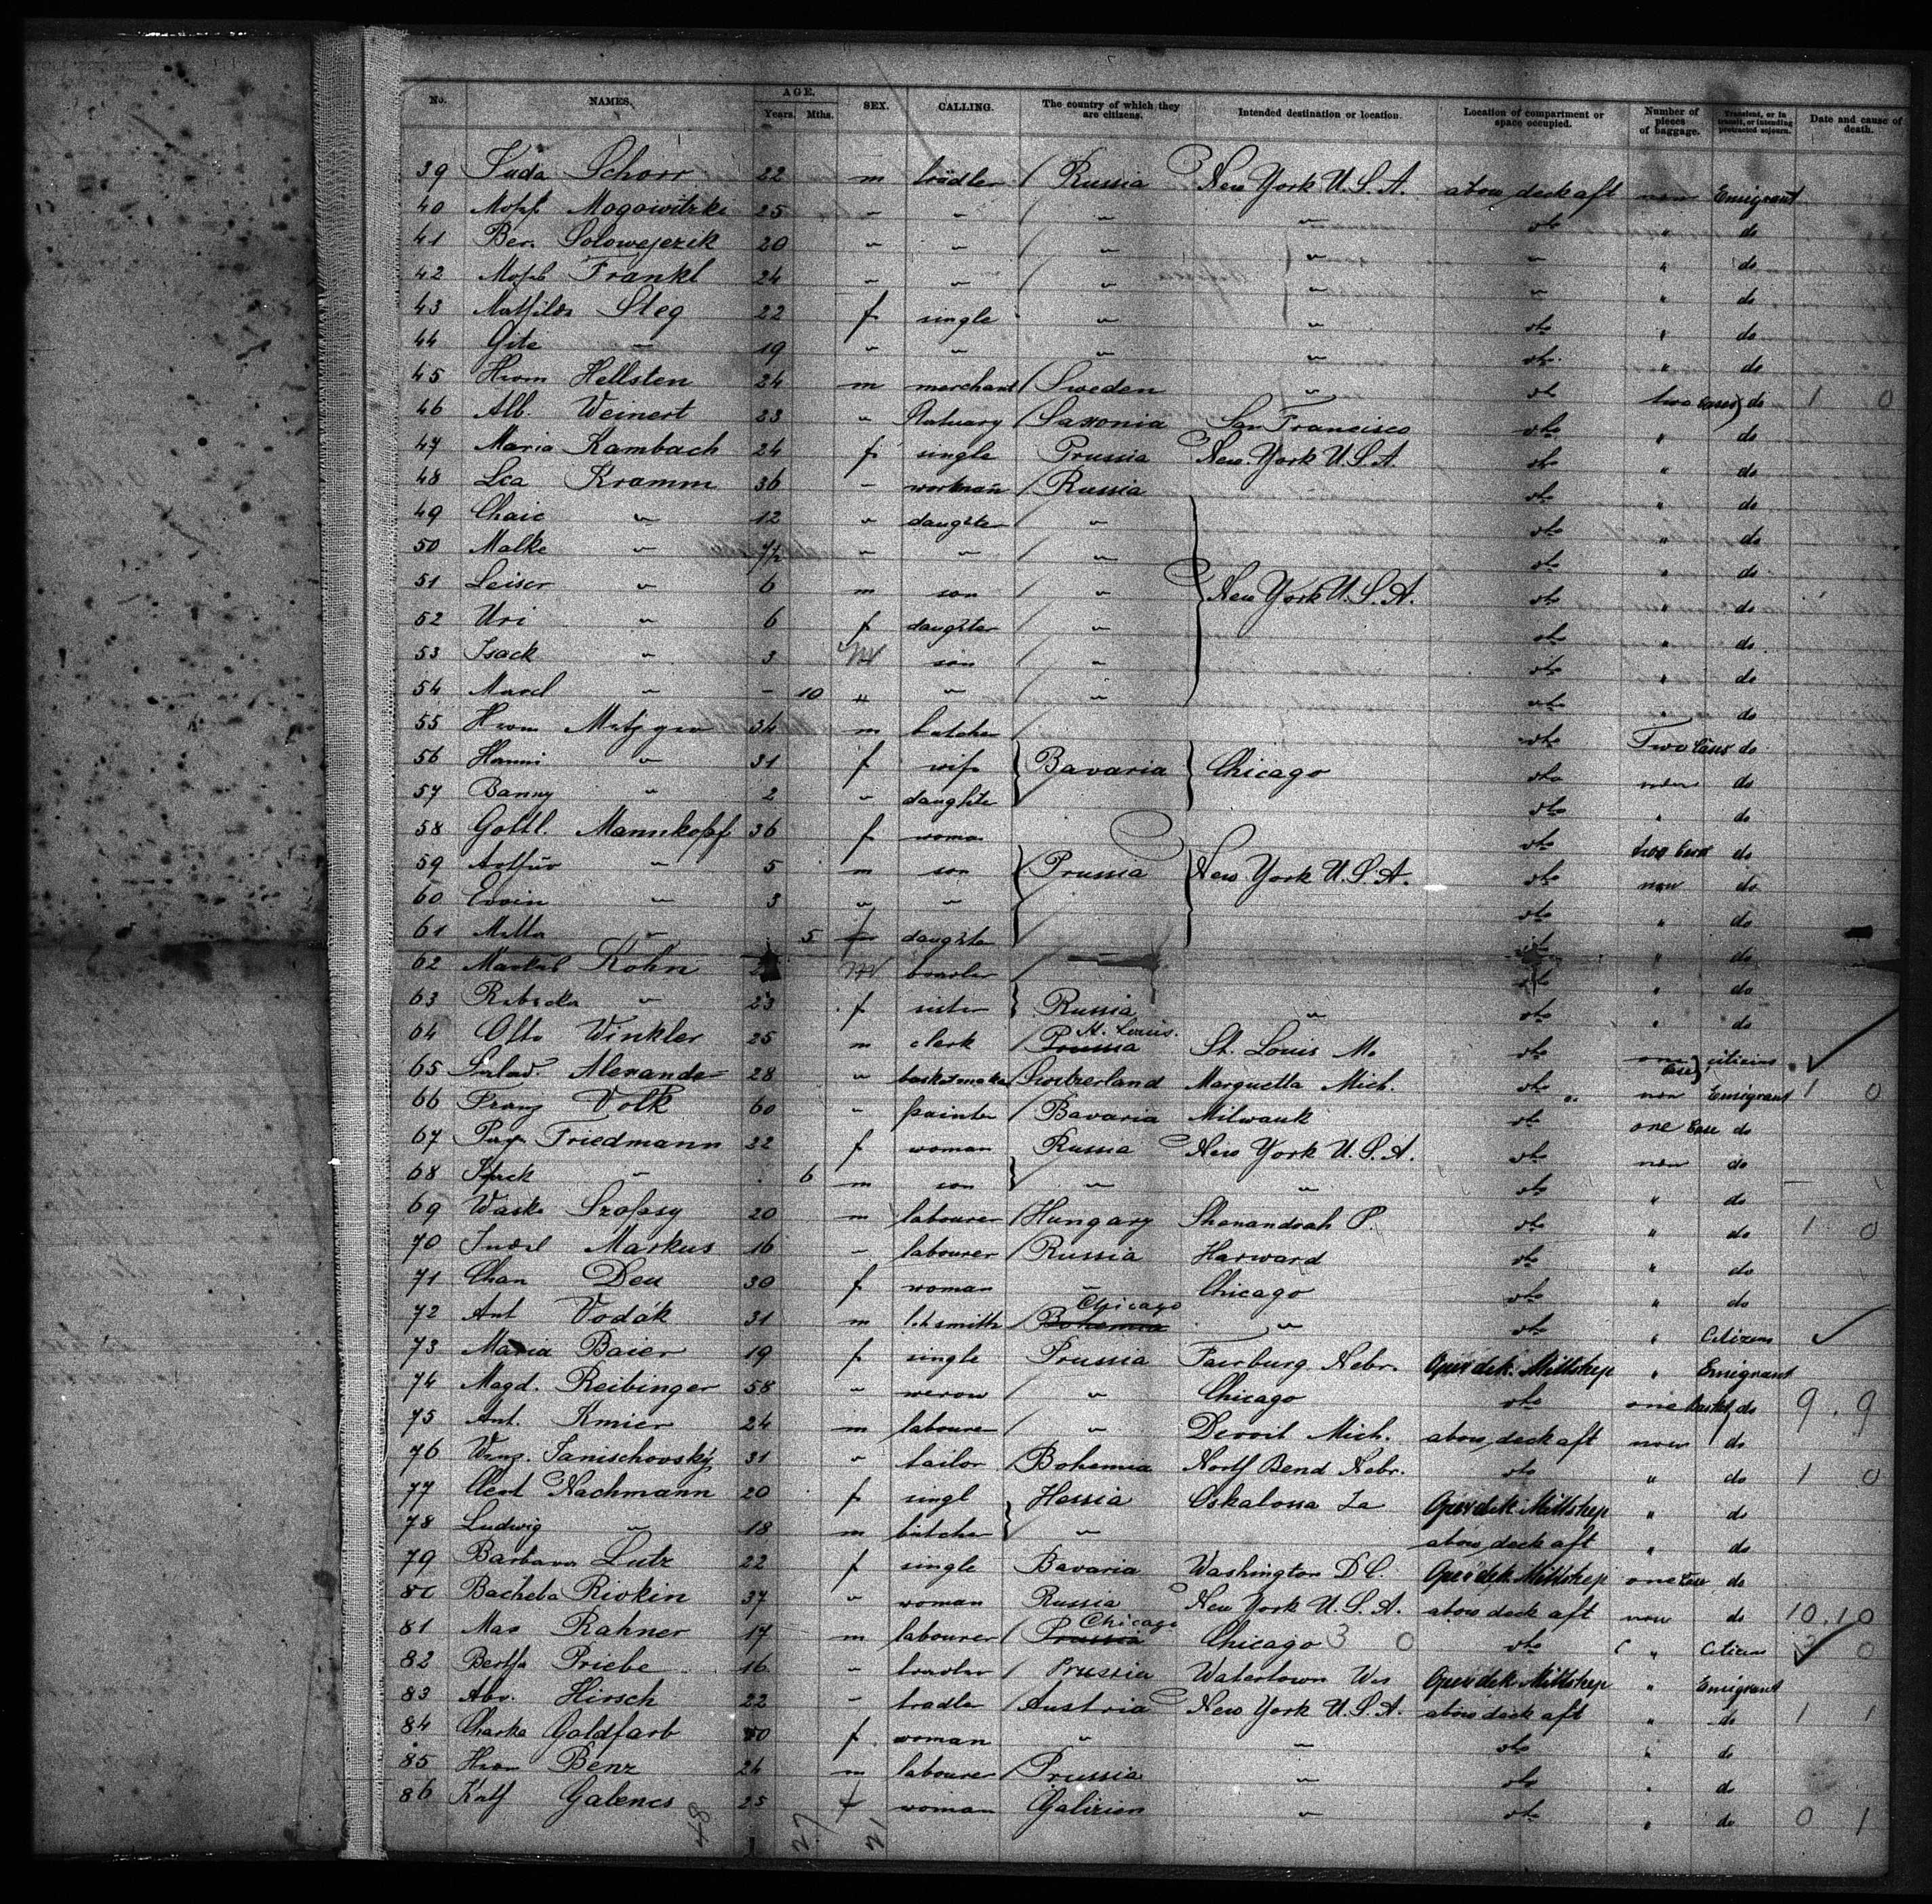 No. NAMES. AGE. Years. Mths. SEX. CALLING. The country of which they are citizens. Intended destination or location. Location of compartment or space occupied. Number of pieces of baggage. Transient, or in transit, or intending protracted sojourn. Date and cause of death.
39 Juda Schorr 22 m trädler / Russia New York U.S.A. above deck aft non Emigrant
40 Mogowitzki 25 " " / " " dto " do
41 Ber. Solowejczik 20 " " / " " " " do
42 Frankl 24 " " / " " " " do
43 Mathilde Steg 22 f single " " dto " do
44 Gite " 19 " " " " dto " do
45 Herm Hellsten 24 m merchant / Sweden " dto two cases do 1 0
46 Alb. Weinert 23 " Statuary / Saxonia San Francisco dto " do
47 Maria Kambach 24 f single Prussia New York U.S.A. dto " do
48 Lea Kramm 36 " workman / Russia dto " do
49 Chaie " 12 " daughter / " dto " do
50 Malke " " " / " dto " do
51 Leiser " 6 m son / " New York U.S.A. dto " do
52 Uri " 6 f daughter / " dto " do
53 Isack " 3 m son / " dto " do
54 " - 10 " " / " dto " do
55 Herm Metzger 34 m butcher / dto Two Cases do
56 Hanni " 31 f wife Bavaria Chicago dto non do
57 Banny " 2 " daughter dto " do
58 Gottl. Mannkopf 36 f woman dto do
59 Arthur " 5 m son Prussia New York U.S.A. dto non do
60 Erwin " 3 " " dto " do
61 " 5 f daughter dto " do
62 Markus Kohn m / dto " do
63 Rebecka " 23 f sister Russia " dto " do
64 Otto Winkler 25 m clerk / Prussia St. Louis. St. Louis Mo dto one Case citizens
65 Alexander 28 " basketmaker / Switzerland Marquetta Mich. dto non Emigrant 1 0
66 Franz Volk 60 " painter / Bavaria Milwauk dto one Case do
67 Friedmann 22 f woman Russia New York U.S.A. dto non do
68 " 6 m son " " dto " do
69 Wasko 20 m labourer / Hungary Shenandoah P. dto " do 1 0
70 Markus 16 " labourer / Russia Harward dto " do
71 Chan Deu 30 f woman " Chicago dto " do
72 Ant Vodák 31 m / Bohemia Chicago " dto " Citizen
73 Maria Baier 19 f single Prussia Fairburg Nebr. Oper dek. Mittshep " Emigrant
74 Magd. Reibinger 58 " / " Chicago dto one basket do 9 . 9
75 Ant. Kmier 24 m labourer " Detroit Mich. above deck aft non do
76 Wenz. Janischovský 31 " tailor / Bohemia North Bend Nebr. dto " do 1 0
77 Nachmann 20 f singl Hessia Oskaloosa Ia Oper dek Mittshep " do
78 Ludwig " 18 m butcher " above deck aft " do
79 Barbara Lutz 22 f single Bavaria Washington D.C. Oper dek Mittshep one Case do
80 Bacheba Rivkin 37 " woman Russia New York U.S.A. above deck aft non do 10.10
81 Max Rahner 17 m labourer / Prussia Chicago Chicago 3 0 dto " Citizen 0
82 Bertha Priebe 16 " / Prussia Watertown Wis Oper dek Mittshep " Emigrant
83 Abr. Hirsch 22 " tradler / Austria New York U.S.A. above deck aft " do 1 1
84 Charka Goldfarb f woman " " dto " do
85 Herm Benz 26 m labourer / Prussia " dto " do
86 Kath Galenes 25 f woman Galizien " dto " do 0 1
48 27 21